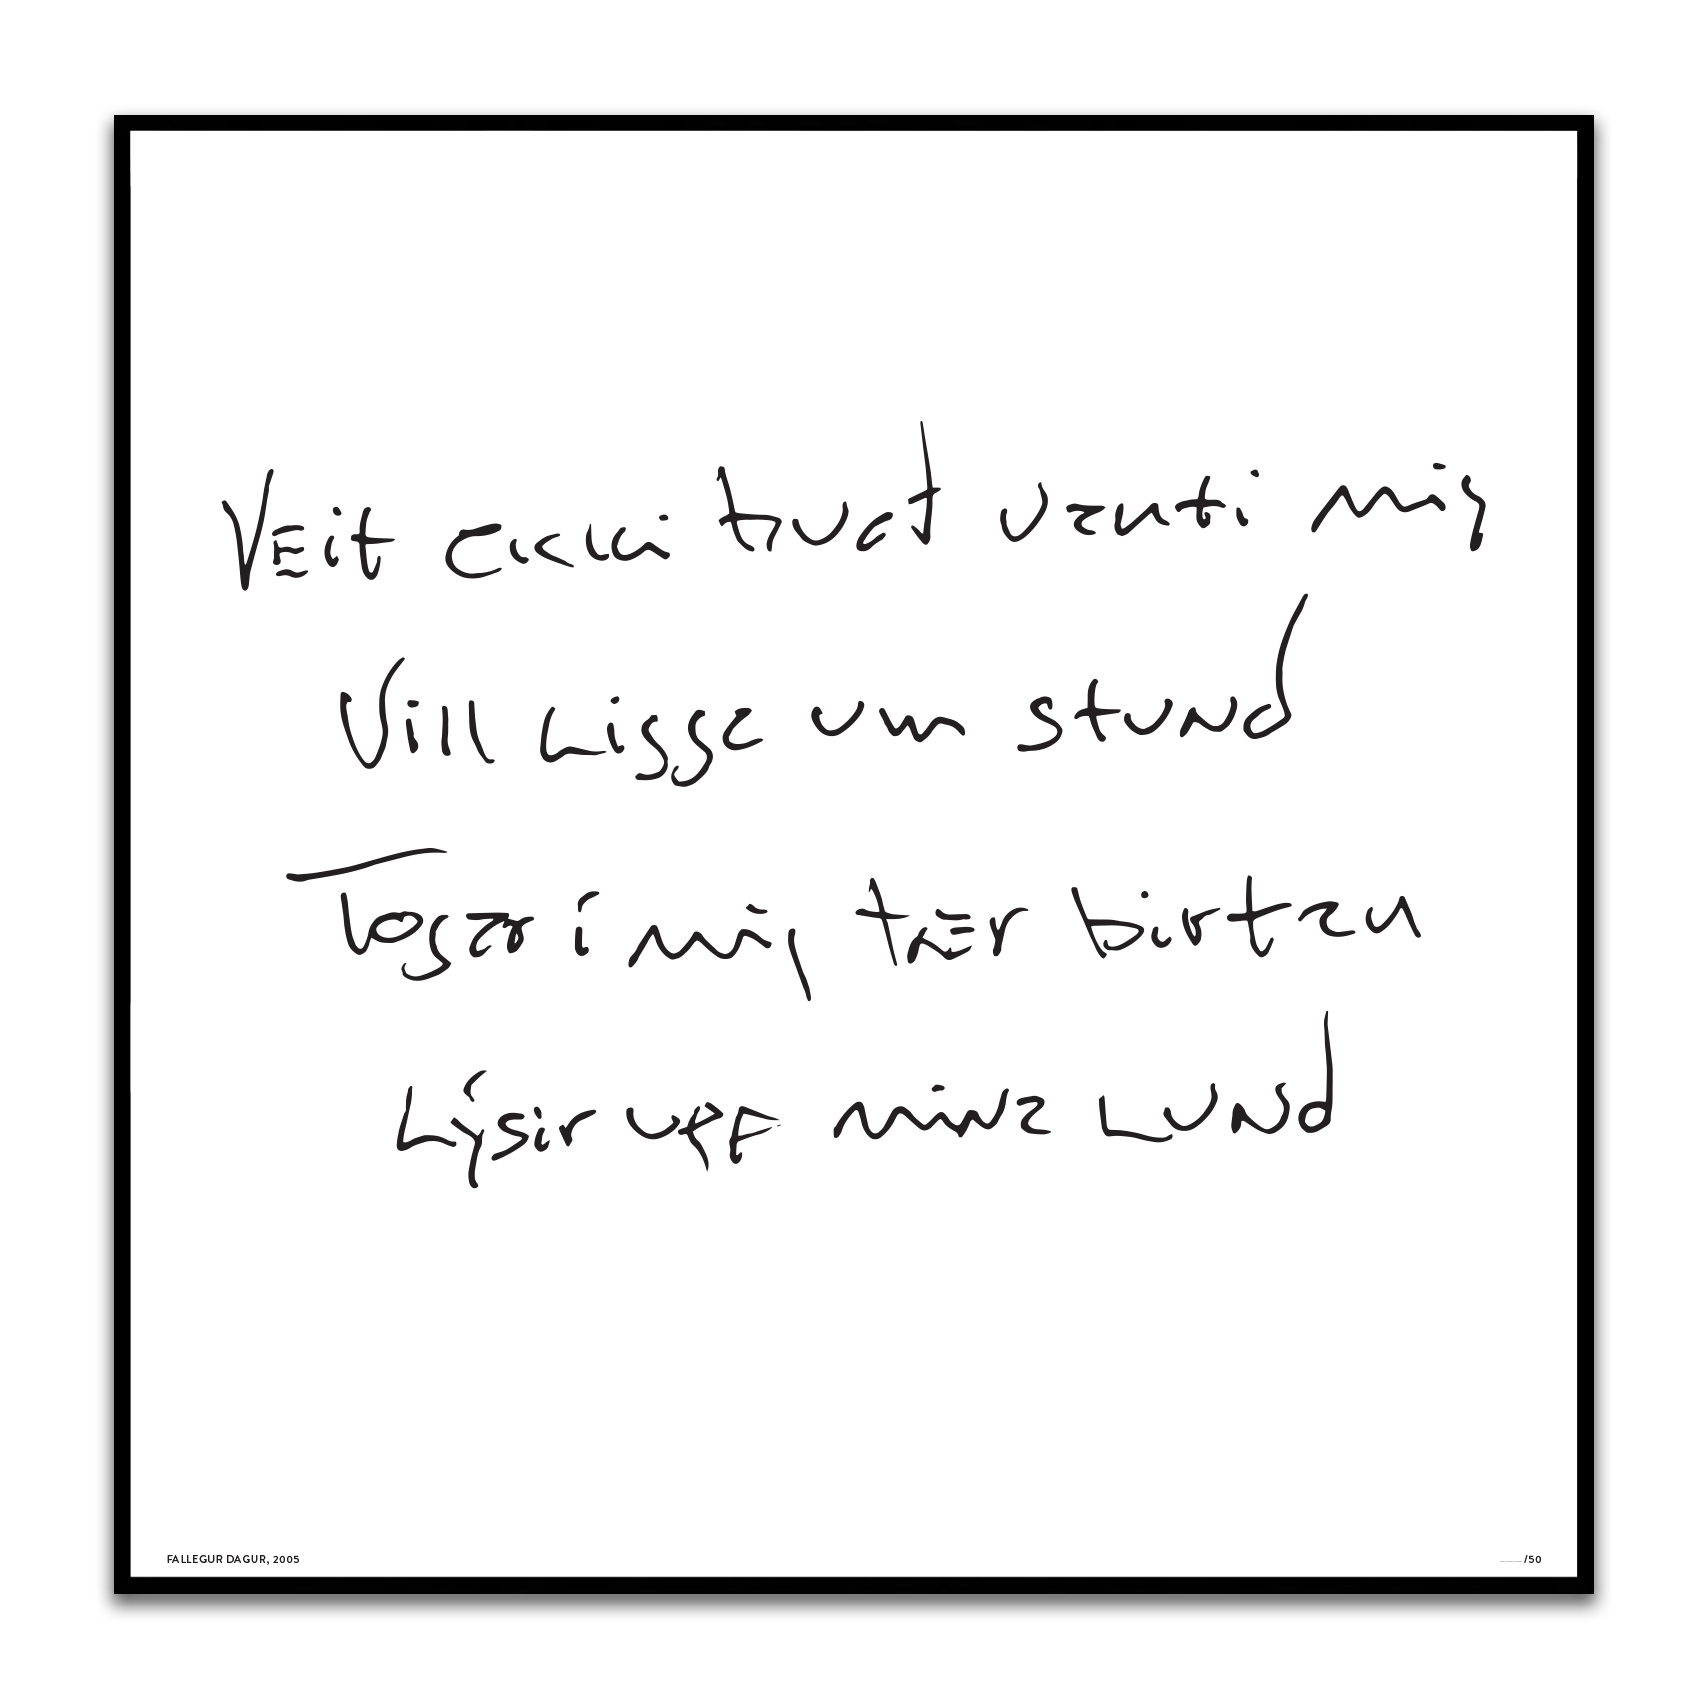 Veit ekki hvað vakti mig
Vill Ligga um stund
Togar í mig tær birtan
Lýsir upp mina Lund
FALLEGUR DAGUR, 2005
/50